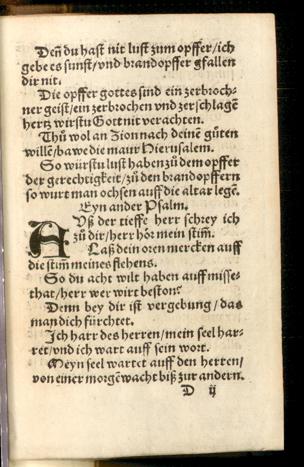 Deñ du hast nit lust zum opffer/ich
gebe es sunst/vnd brandopffer gfallen
dir nit.
Die opffer gottes sind ein zerbroch-
ner geist/ein zerbrochen vnd zerschlagē
hertz wirstu Gott nit verachten.
Thů wol an Zion nach deinē gůten
willē/bawe die maur Hierusalem.
So würstu lust haben zů dem opffer
der gerechtigkeit/zů den brandopffern
so wurt man ochsen auff die altar legē.
Eyn ander Psalm.
AVß der tieffe herr schrey ich
zů dir/herr hör mein stim̄.
Laß dein oren mercken auff
die stim̄ meines flehens.
So du acht wilt haben auff misse-
that/herr wer wirt beston?
Denn bey dir ist vergebung/das
man dich fürchtet.
Ich harr des herren/mein seel har-
ret/vnd ich wart auff sein wort.
Meyn seel wartet auff den herren/
von einer morgēwacht biß zur andern.
D ij